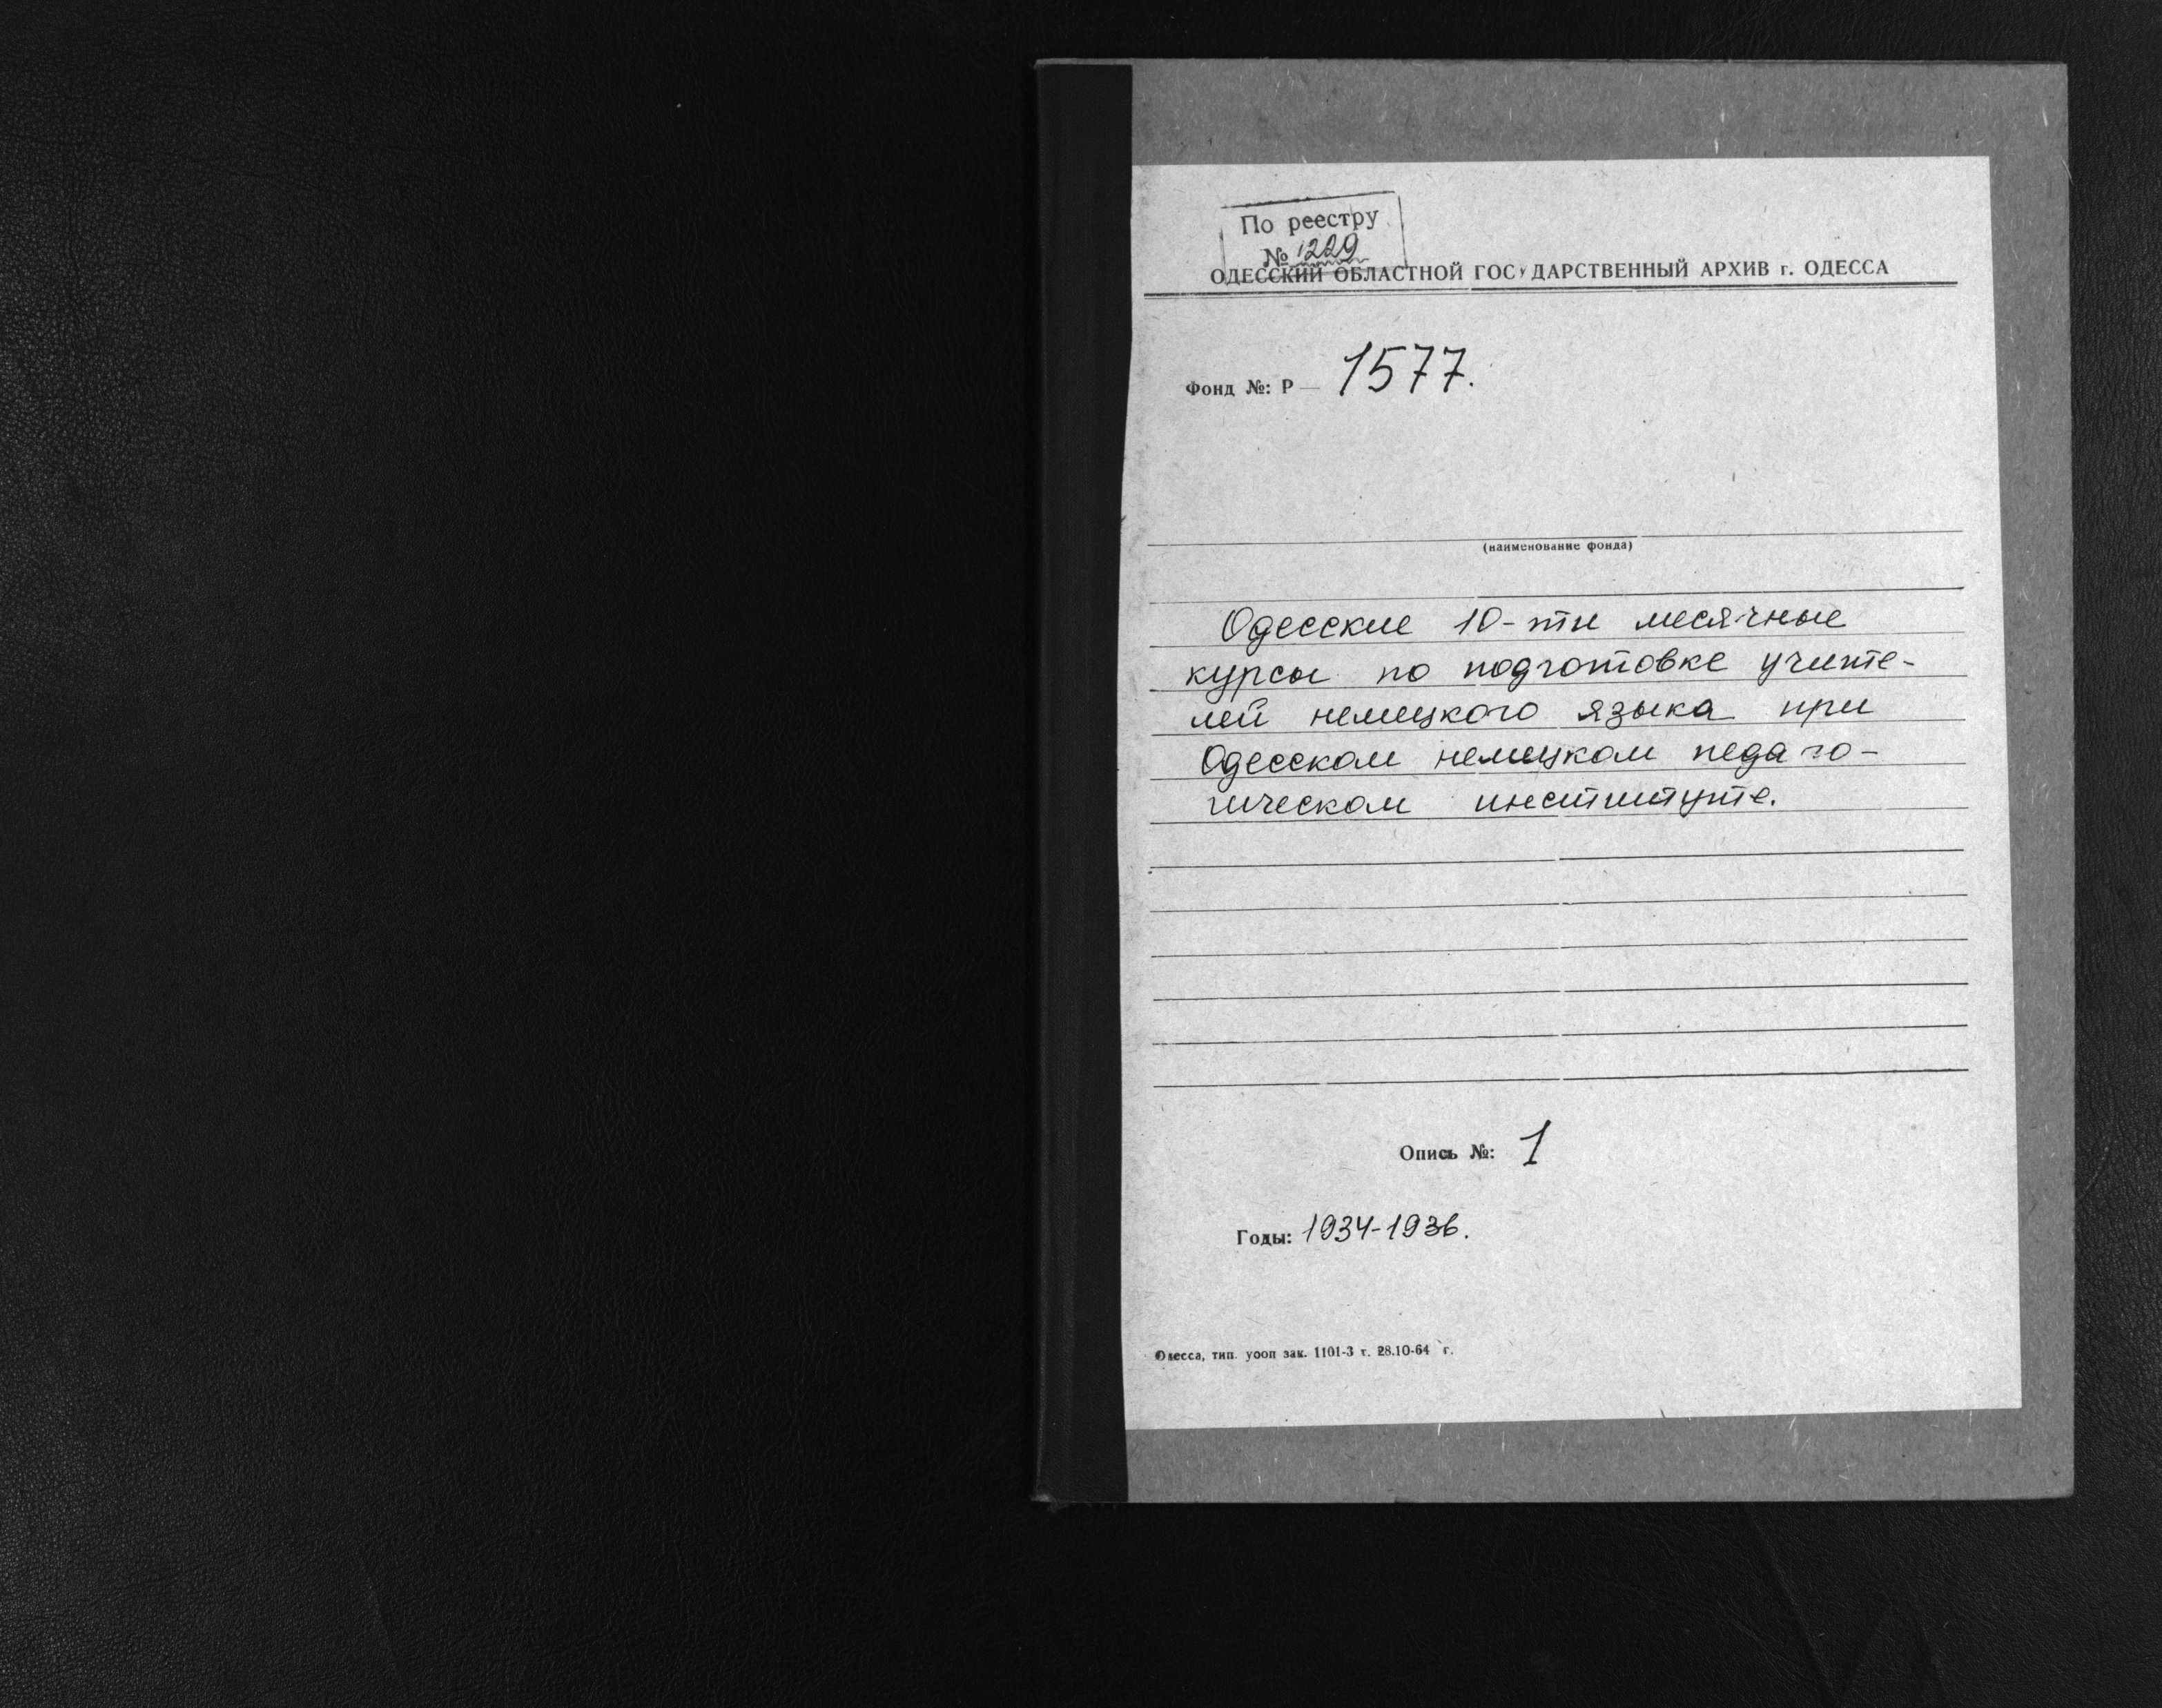 По реестру
№ 1229
ОДЕССКИЙ ОБЛАСТНОЙ ГОСУДАРСТВЕННЫЙ АРХИВ г. ОДЕССА
Фонд №: Р — 1577.
(наименование фонда)
Одесские 10-ти месячные
курсы по подготовке учите-
лей немецкого языка при
Одесском немецком педаго-
гическом институте.
Опись №: 1
Годы: 1934-1936.
Одесса, тип. уооп зак. 1101-3 т. 28.10-64 г.